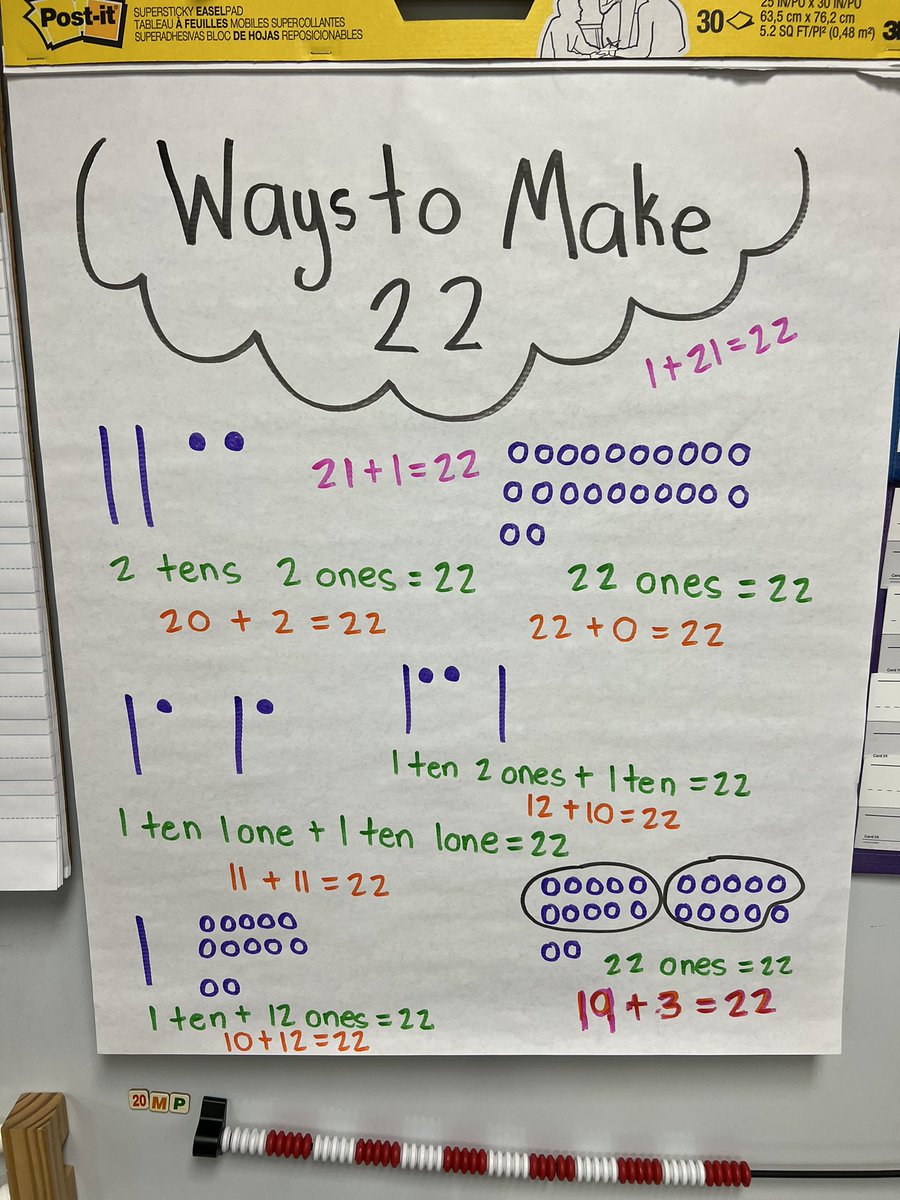 Post-it
SUPERSTICKY EASELPAD
TABLEAU À FEUILLES MOBILES SUPERCOLLANTES
SUPERADHESIVAS BLOC DE HOJAS REPOSICIONABLES
30
25 IN/PO x 30 IN/PO
63,5 cm x 76,2 cm
5.2 SQ FT/PI² (0,48 m²)
Ways to Make
22
1+21=22
21+1=22
2 tens 2 ones = 22
20 + 2 = 22
22 ones = 22
22 + 0 = 22
1 ten 2 ones + 1 ten = 22
12 + 10 = 22
1 ten 1 one + 1 ten 1 one = 22
11 + 11 = 22
1 ten + 12 ones = 22
10+12=22
22 ones = 22
19 + 3 = 22
20 M P